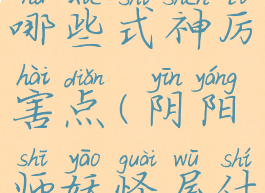 nǎ xiē shì shén lì
哪些式神厉
hài diǎn yīn yáng
害点(阴阳
shī yāo guài wū shí
师妖怪屋什